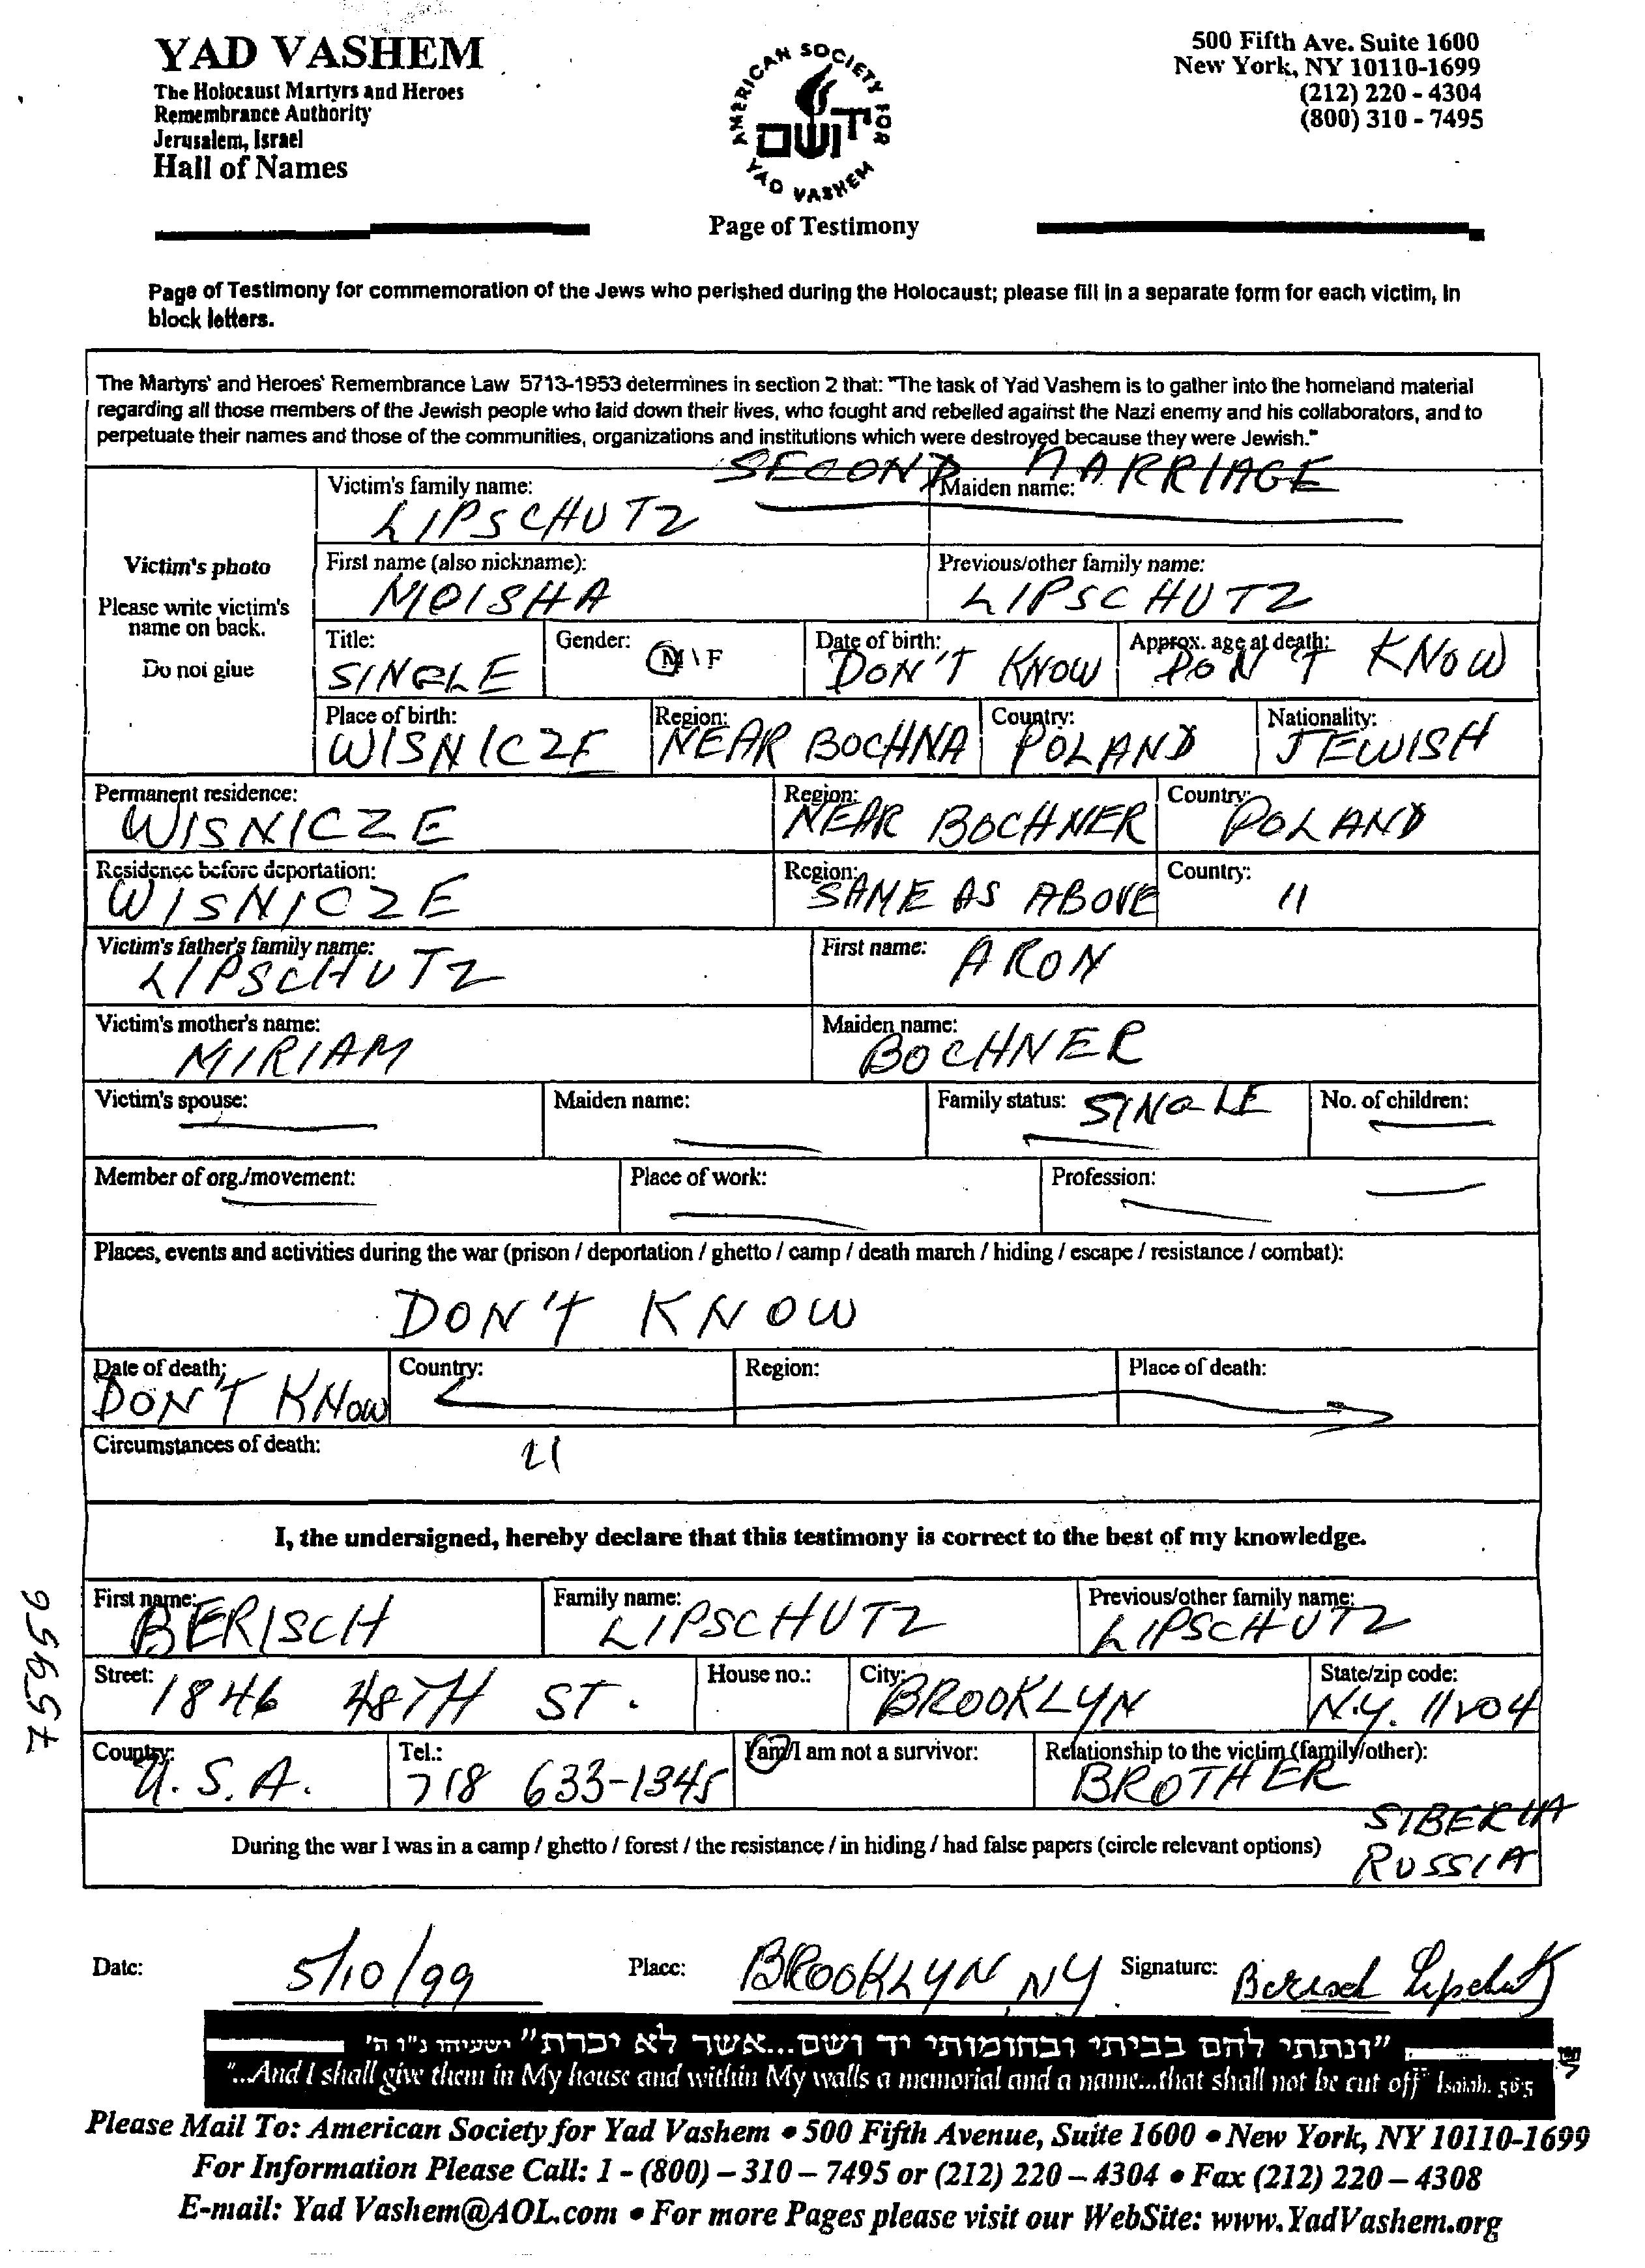 YAD VASHEM
The Holocaust Martyrs and Heroes
Remembrance Authority
Jerusalem, Israel
Hall of Names
AMERICAN SOCIETY FOR
יד ושם
YAD VASHEM
Page of Testimony
500 Fifth Ave. Suite 1600
New York, NY 10110-1699
(212) 220 - 4304
(800) 310 - 7495
Page of Testimony for commemoration of the Jews who perished during the Holocaust; please fill in a separate form for each victim, in
block letters.
The Martyrs' and Heroes' Remembrance Law 5713-1953 determines in section 2 that: "The task of Yad Vashem is to gather into the homeland material
regarding all those members of the Jewish people who laid down their lives, who fought and rebelled against the Nazi enemy and his collaborators, and to
perpetuate their names and those of the communities, organizations and institutions which were destroyed because they were Jewish."
SECOND MARRIAGE
Victim's family name: Maiden name:
LIPSCHUTZ
Victim's photo
Please write victim's
name on back.
Do not glue
First name (also nickname): Previous/other family name:
MOISHA LIPSCHUTZ
Title: Gender: Date of birth: Approx. age at death:
SINGLE M\F DON'T KNOW DON'T KNOW
Place of birth: Region: Country: Nationality:
WISNICZE NEAR BOCHNA POLAND JEWISH
Permanent residence: Region: Country:
WISNICZE NEAR BOCHNER POLAND
Residence before deportation: Region: Country:
WISNICZE SAME AS ABOVE 11
Victim's father's family name: First name:
LIPSCHUTZ ARON
Victim's mother's name: Maiden name:
MIRIAM BOCHNER
Victim's spouse: Maiden name: Family status: SINGLE No. of children:
Member of org./movement: Place of work: Profession:
Places, events and activities during the war (prison / deportation / ghetto / camp / death march / hiding / escape / resistance / combat):
DON'T KNOW
Date of death: Country: Region: Place of death:
DON'T KNOW
Circumstances of death: 11
I, the undersigned, hereby declare that this testimony is correct to the best of my knowledge.
First name: Family name: Previous/other family name:
BERISCH LIPSCHUTZ LIPSCHUTZ
Street: House no.: City: State/zip code:
1846 48TH ST. BROOKLYN N.Y. 11204
Country: Tel.: I am/I am not a survivor: Relationship to the victim (family/other):
U.S.A. 718 633-1345 BROTHER
During the war I was in a camp / ghetto / forest / the resistance / in hiding / had false papers (circle relevant options)
SIBERIA
RUSSIA
75956
Date: 5/10/99 Place: BROOKLYN NY Signature: Berisch Lipschutz
"ונתתי להם בביתי ובחומותי יד ושם...אשר לא יכרת" ישעיהו נ"ו ה'
"...And I shall give them in My house and within My walls a memorial and a name...that shall not be cut off" Isaiah. 56:5
Please Mail To: American Society for Yad Vashem • 500 Fifth Avenue, Suite 1600 • New York, NY 10110-1699
For Information Please Call: 1 - (800) – 310 – 7495 or (212) 220 – 4304 • Fax (212) 220 – 4308
E-mail: Yad Vashem@AOL.com • For more Pages please visit our WebSite: www.YadVashem.org